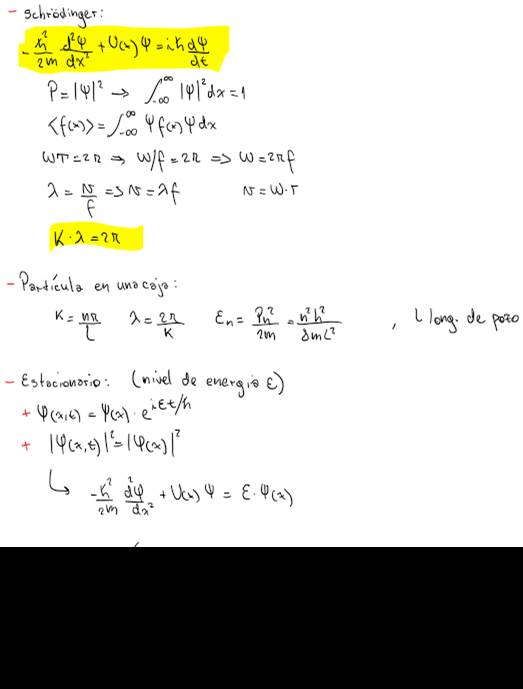 - Schrödinger:
-ℏ²/2m d²Ψ/dx² + U(x)Ψ = iℏ dΨ/dt
P = |Ψ|² → ∫_{-∞}^{∞} |Ψ|² dx = 1
⟨f(x)⟩ = ∫_{-∞}^{∞} Ψ f(x) Ψ dx
ωT = 2π ⇒ ω/f = 2π ⇒ ω = 2πf
λ = v/f ⇒ v = λf v = ω·r
K·λ = 2π
- Partícula en una caja:
K = nπ/L λ = 2π/K E_n = P_n²/2m = n²h²/8mL² , L long. de pozo
- Estacionario: (nivel de energía E)
+ Ψ(x,t) = Ψ(x)·e^{iEt/ℏ}
+ |Ψ(x,t)|² = |Ψ(x)|²
↳ -ℏ²/2m d²Ψ/dx² + U(x)Ψ = E·Ψ(x)